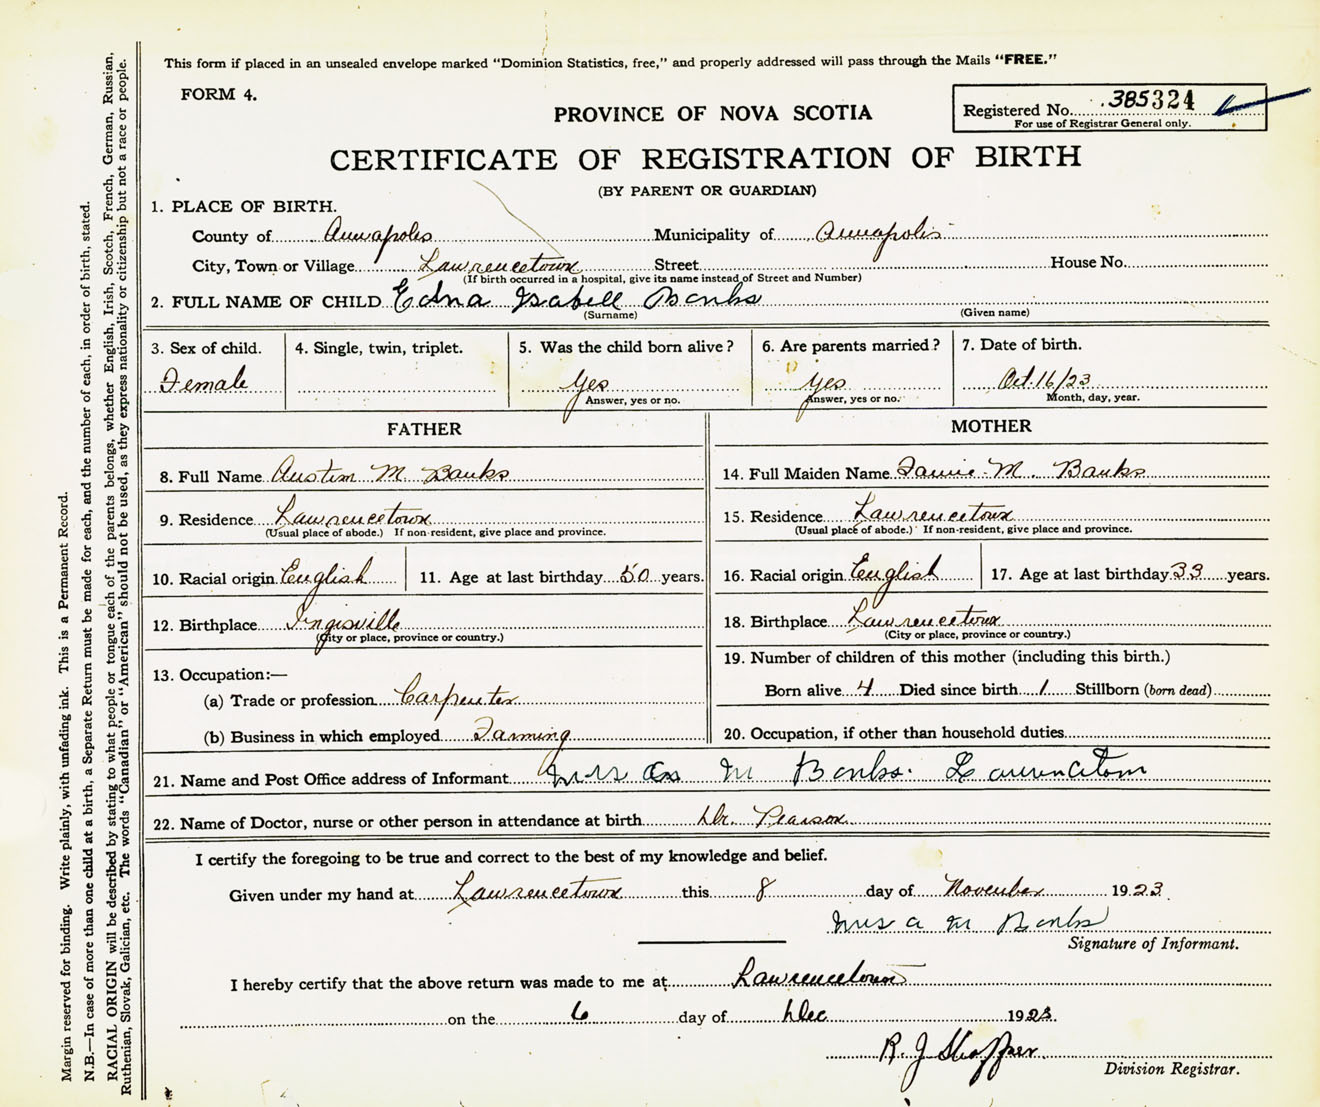 This form if placed in an unsealed envelope marked "Dominion Statistics, free," and properly addressed will pass through the Mails "FREE."
FORM 4.
Registered No. 385324
For use of Registrar General only.
PROVINCE OF NOVA SCOTIA
CERTIFICATE OF REGISTRATION OF BIRTH
(BY PARENT OR GUARDIAN)
1. PLACE OF BIRTH.
County of Annapolis Municipality of Annapolis
City, Town or Village Lawrencetown Street House No.
(If birth occurred in a hospital, give its name instead of Street and Number)
2. FULL NAME OF CHILD Edna Isabell Banks
(Surname) (Given name)
3. Sex of child. 4. Single, twin, triplet. 5. Was the child born alive? 6. Are parents married? 7. Date of birth.
Female Yes Yes Oct. 16/23
Answer, yes or no. Answer, yes or no. Month, day, year.
FATHER
8. Full Name Austin M Banks
9. Residence Lawrencetown
(Usual place of abode.) If non-resident, give place and province.
10. Racial origin English 11. Age at last birthday 50 years.
12. Birthplace Ingisville
(City or place, province or country.)
13. Occupation:—
(a) Trade or profession Carpenter
(b) Business in which employed Farming
MOTHER
14. Full Maiden Name Fannie M. Banks
15. Residence Lawrencetown
(Usual place of abode.) If non-resident, give place and province.
16. Racial origin English 17. Age at last birthday 33 years.
18. Birthplace Lawrencetown
(City or place, province or country.)
19. Number of children of this mother (including this birth.)
Born alive 4 Died since birth 1 Stillborn (born dead)
20. Occupation, if other than household duties
21. Name and Post Office address of Informant Mrs M Banks. Lawrencetown
22. Name of Doctor, nurse or other person in attendance at birth Dr. Pearson
I certify the foregoing to be true and correct to the best of my knowledge and belief.
Given under my hand at Lawrencetown this 8 day of November 1923
Mrs A M Banks
Signature of Informant.
I hereby certify that the above return was made to me at Lawrencetown
on the 6 day of Dec 1923.
R. J. Shaffner
Division Registrar.
Margin reserved for binding. Write plainly, with unfading ink. This is a Permanent Record.
N.B.—In case of more than one child at a birth, a Separate Return must be made for each, and the number of each, in order of birth, stated.
RACIAL ORIGIN will be described by stating to what people or tongue each of the parents belongs, whether English, Irish, Scotch, French, German, Russian,
Ruthenian, Slovak, Galician, etc. The words "Canadian" or "American" should not be used, as they express nationality or citizenship but not a race or people.